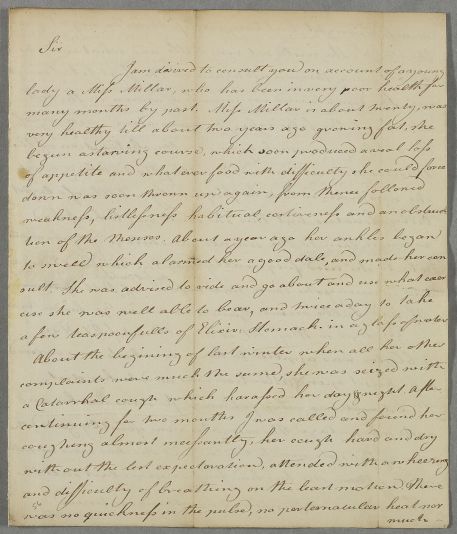 Sir
I am desired to consult you on account of a young
lady a Miss Millar, who has been in very poor health for
many months by past. Miss Millar is about twenty, was
very healthy till about two years ago growing fat, she
begun a starving course, which soon produced a real loss
of appetite and whatever food with difficulty she could force
down was soon thrown up again, from thence followed
weakness, listlessness habitual, costiveness and an obstruc
tion of the Menses. About a year ago her ankles began
to swell which alarmed her a good dale, and made her con
sult. She was advised to ride and go about and use what exer
cise she was well able to bear, and twice a day to take
a few teaspoonfulls of Elixir: Stomach: in a glass of water
About the begining of last winter when all her other
complaints were much the same, she was seized with
a Catarrhal cough which harassed her day & night. After
continuing for two months I was called and found her
coughing almost incessantly; her cough hard and dry
without the lest expectoration, attended with a wheezing
and difficulty of breathing on the least motion. There
was no quickness in the pulse, no preternatural heat nor
much